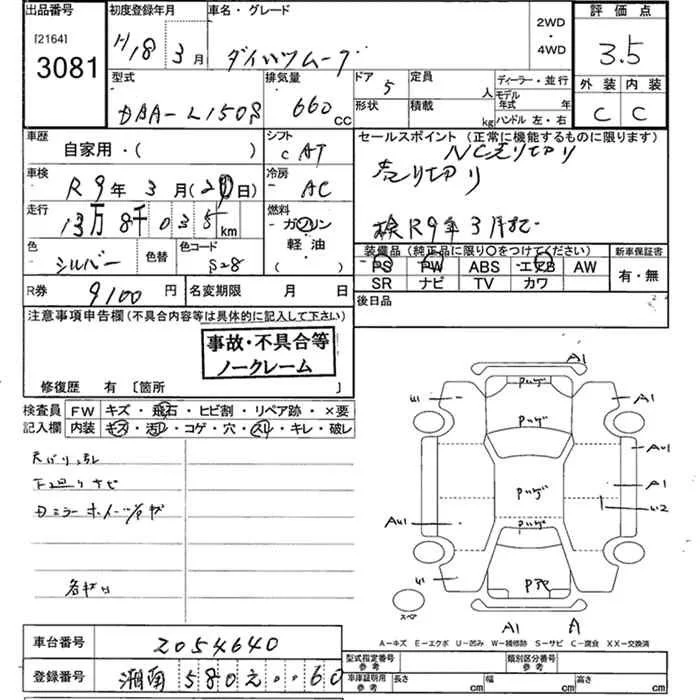 出品番号
[2164]
3081
初度登録年月
H18年 3月
車名・グレード
ダイハツムーブ
2WD
・
4WD
評価点
3.5
外装 内装
C C
型式
DBA-L150S
排気量
660 CC
ドア
5
形状
定員
人
積載
kg
ディーラー・並行
モデル年式 年
ハンドル 左・右
車歴
自家用・( )
シフト
C AT
セールスポイント (正常に機能するものに限ります)
NC売り切り
売り切り
検R9年3月迄
車検
R9年 3月( 日)
冷房
AC
走行
13万8千035 km
燃料
ガソリン
軽油
( )
色
シルバー
色替
色コード
S28
装備品(純正品に限り〇をつけてください)
PS PW ABS エアB AW
SR ナビ TV カワ
新車保証書
有・無
R券
9100円
名変期限 月 日
後日品
注意事項申告欄(不具合内容等は具体的に記入して下さい)
事故・不具合等
ノークレーム
修復歴 有〔箇所 〕
検査員 FW キズ・飛石・ヒビ割・リペア跡・×要
記入欄 内装 キズ・汚レ・コゲ・穴・スレ・キレ・破レ
下廻りサビ
A1
A1
AU1
A1
U2
U1
AU1
U1
A1 A
スペア
A−キズ E−エクボ U−凹み W−補修跡 S−サビ C−腐食 XX−交換済
車台番号
2054640
登録番号
湘南 580 え ・・60
型式指定番号
参考
類別区分番号
参考
車庫証明用
参考
長さ cm 幅 cm 高さ cm